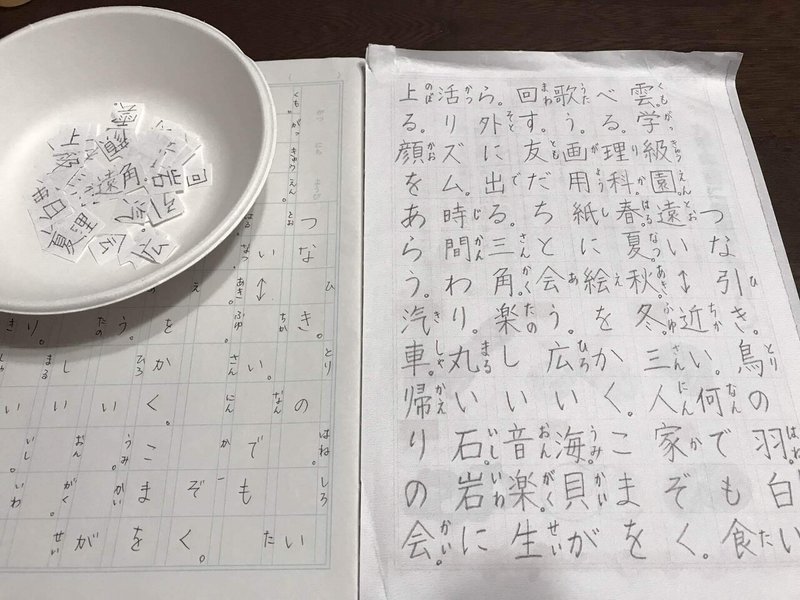 つな引ひき。鳥とりの羽はね。白い
雲くも。学がっ級きゅう園えん。遠とおい↕近ちかい。何なんでも食た
べる。理り科か。春はる夏なつ秋あき冬ふゆ。三さん人にん家かぞく。
歌うたう。画が用よう紙しに絵えをかく。こまを
回まわす。友ともだちと会あう。広ひろい海うみ。貝かいが
ら。外そとに出でる。三さん角かく。楽たのしい音おん楽がく。生せい
活かつリズム。時じ間かんわり。丸まるい石いし。岩いわに
上のぼる。顔かおをあらう。汽き車しゃ。帰かえりの会かい。
つなひき。とりのはね。しろい
くも。がっきゅうえん。とおい↕ちかい。なんでもた
はる、なつ、あき、ふゆ。さんにんかぞく。
えをかく。こまを
う。ひろいうみ。かいが
たのしいおんがく。せい
り。まるいいし。いわ
上
顔
遠
角
岩
回
夏
広
会